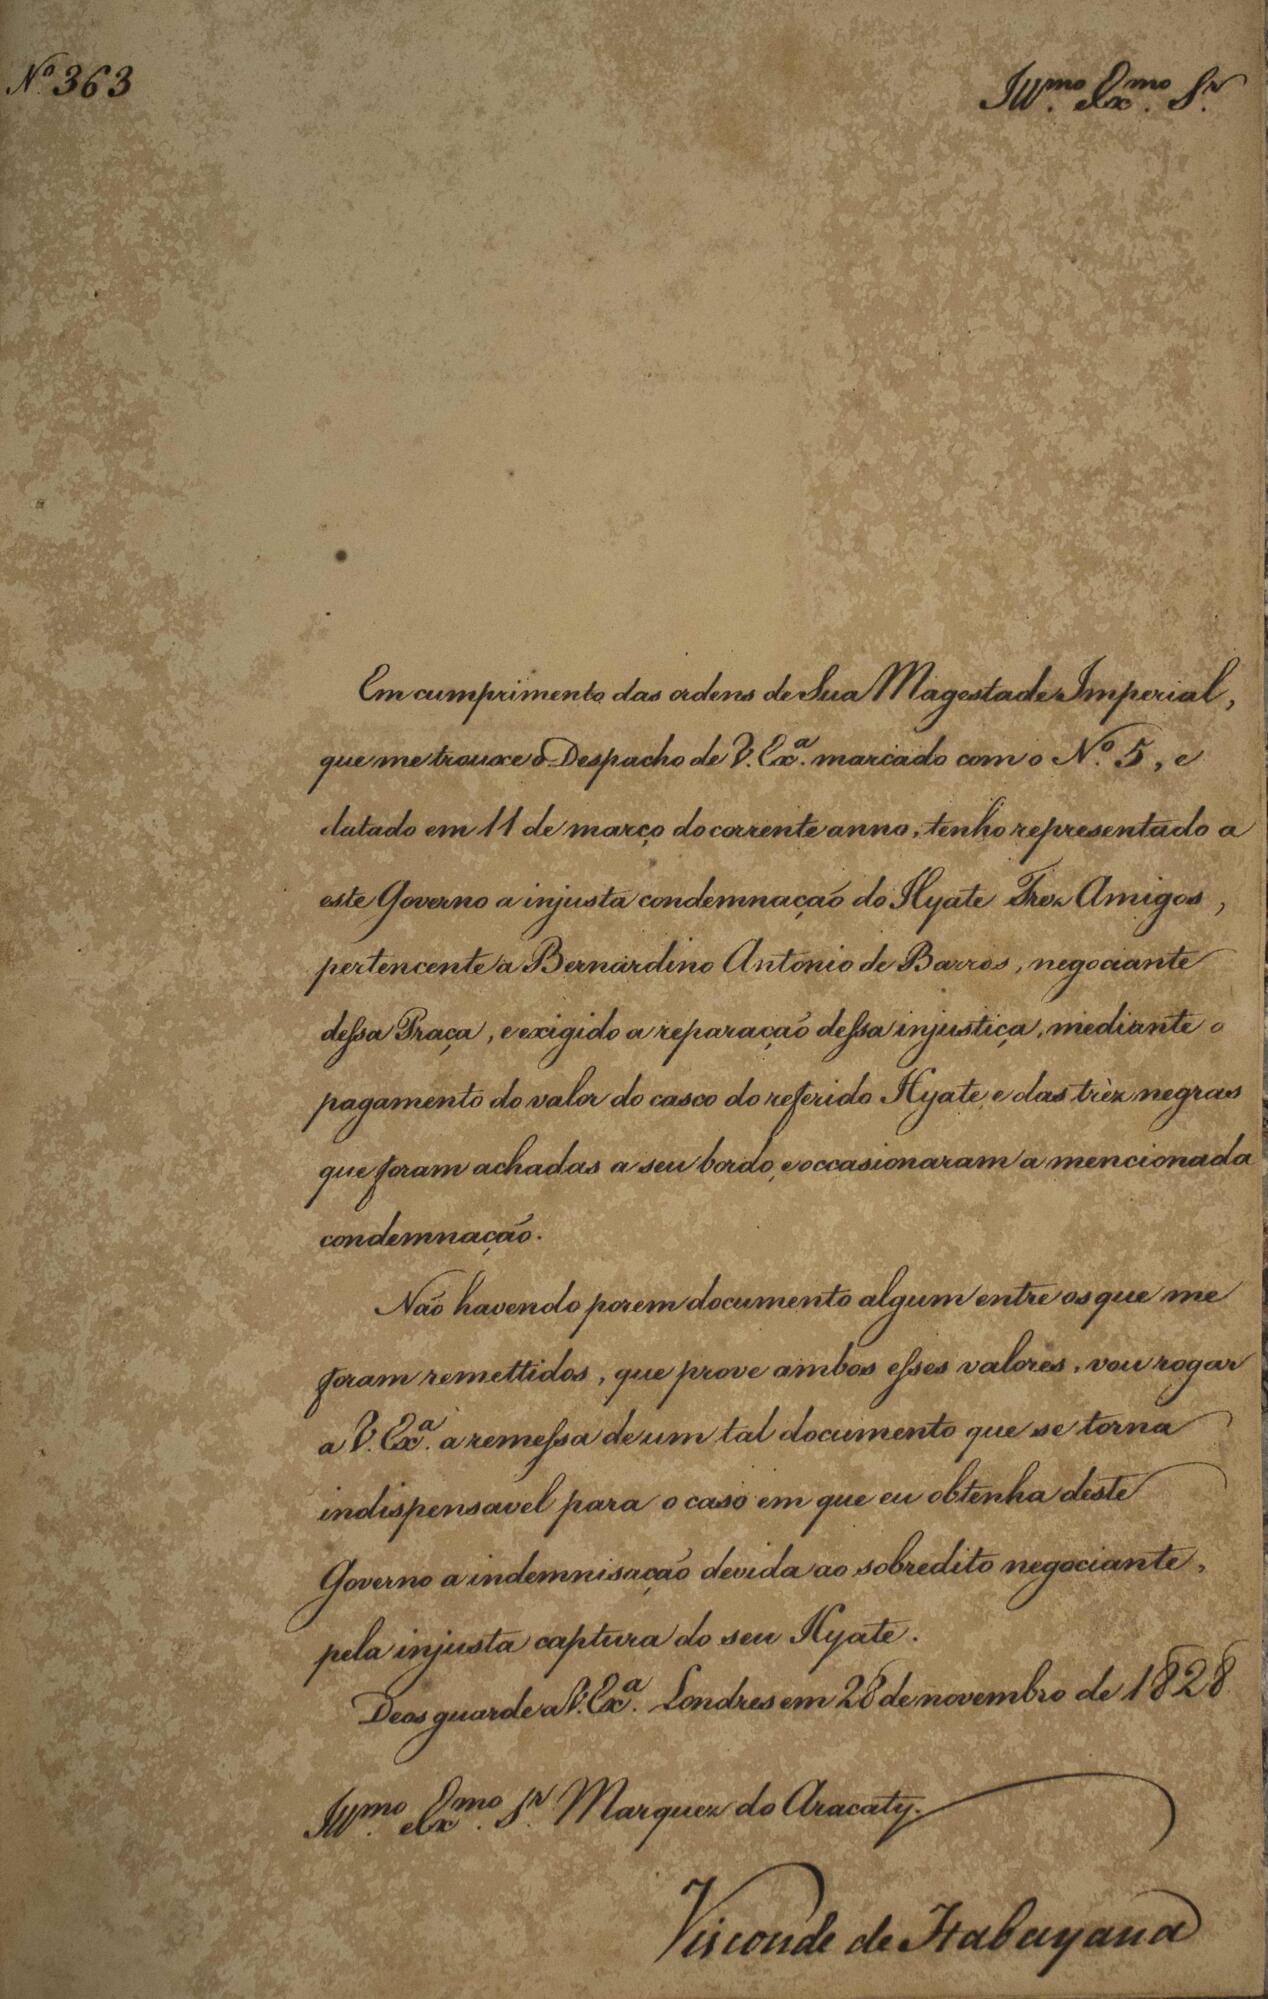 Nº 363
Illmo. e Exmo. Sr.
Em cumprimento das ordens de Sua Magestade Imperial,
que me trouxe o Despacho de V. Exª. marcado com o Nº. 5, e
datado em 11 de março do corrente anno, tenho representado a
este Governo a injusta condemnação do Hyate Trez Amigos,
pertencente a Bernardino Antonio de Barros, negociante
dessa Praça, e exigido a reparação dessa injustiça, mediante o
pagamento do valor do casco do referido Hyate, e das trèz negras
que foram achadas a seu bordo, e occasionaram a mencionada
condemnação.
Não havendo porem documento algum entre os que me
foram remettidos, que prove ambos esses valores, vou rogar
a V. Exª. a remessa de um tal documento que se torna
indispensavel para o caso em que eu obtenha deste
Governo a indemnisação devida ao sobredito negociante,
pela injusta captura do seu Hyate.
Deos guarde a V. Exª. Londres em 28 de novembro de 1828
Illmo. e Exmo. Sr. Marquez do Aracaty.
Visconde de Itabayana